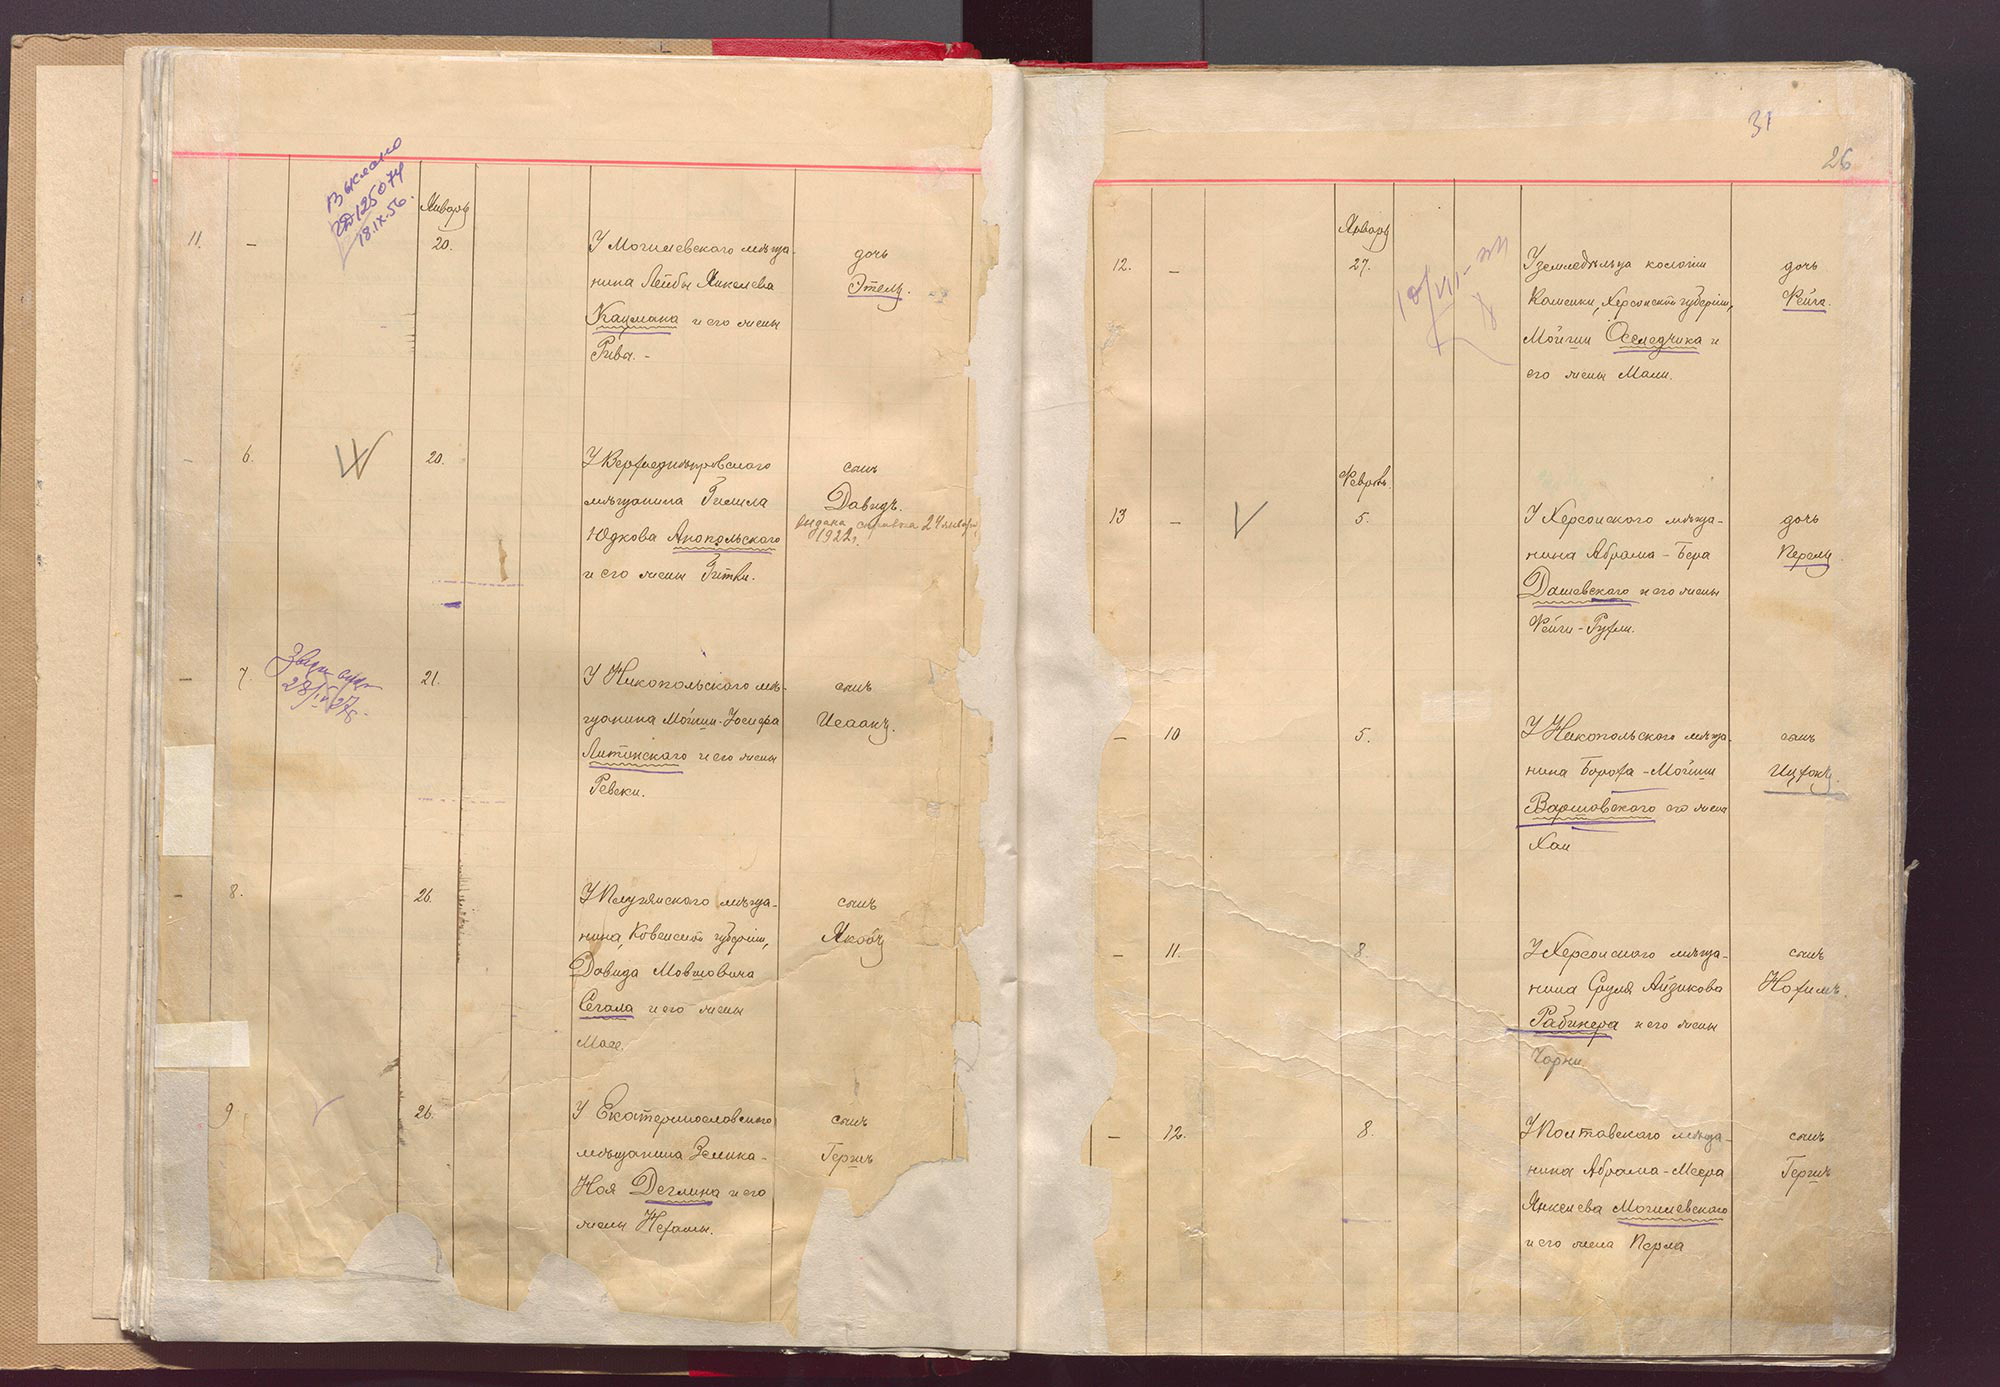 Январь
11. – 20. У Могилевского мѣща-
нина Лейбы Янкелева
Кацмана и его жены
Ривы. –
дочь
Этель.
ГД 125074
18.IX.56.
– 6. 20. У Верхнеднѣпровского
мѣщанина Гилила
Юдкова Анопольского
и его жены Гитки.
сынъ
Давидъ.
выдана справка 24 января
1922 г.
– 7. 21. У Никопольского мѣ-
щанина Мойши-Іосифа
Литинского и его жены
Ревеки.
сынъ
Исаакъ.
– 8. 26. У Плугянского мѣща-
нина, Ковенской губерніи,
Давида Мовшовича
Сегала и его жены
сынъ
Якобъ
9. 26. У Екатеринославского
мѣщанина Зелика-
Ноя Деглина и его
жены Нехамы.
сынъ
Гершъ
31
26
Январь
12. – 27. У земледѣльца колоніи
Каменки, Херсонской губерніи,
Мойши Оселедчика и
его жены Мали.
дочь
Фейга.
Февраль.
13 – 5. У Херсонского мѣща-
нина Абрама-Бера
Дашевского и его жены
Фейги-Рухли.
дочь
Перель
– 10 5. У Никопольского мѣща-
нина Боруха-Мойши
Варшавского его жена
Хаи
сынъ
Ицхокъ.
– 11. 8. У Херсонского мѣща-
нина Сруля Айзикова
Рабинера и его жены
Чарни.
сынъ
Нохимъ.
– 12. 8. У Полтавского мѣща-
нина Абрама-Меера
Янкелева Могилевского
и его жена Перла
сынъ
Гершъ